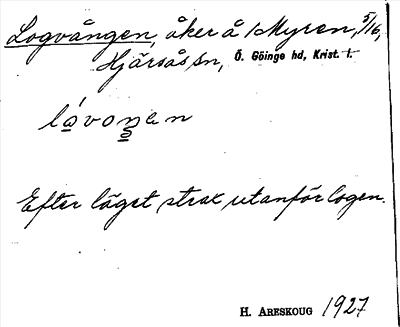 Logvången, åker å 1 Myren, 5/16,
Hjärsås sn, Ö. Göinge hd, Krist. l.
låvoŋen
Efter läget strax utanför logen.
H. ARESKOUG 1927